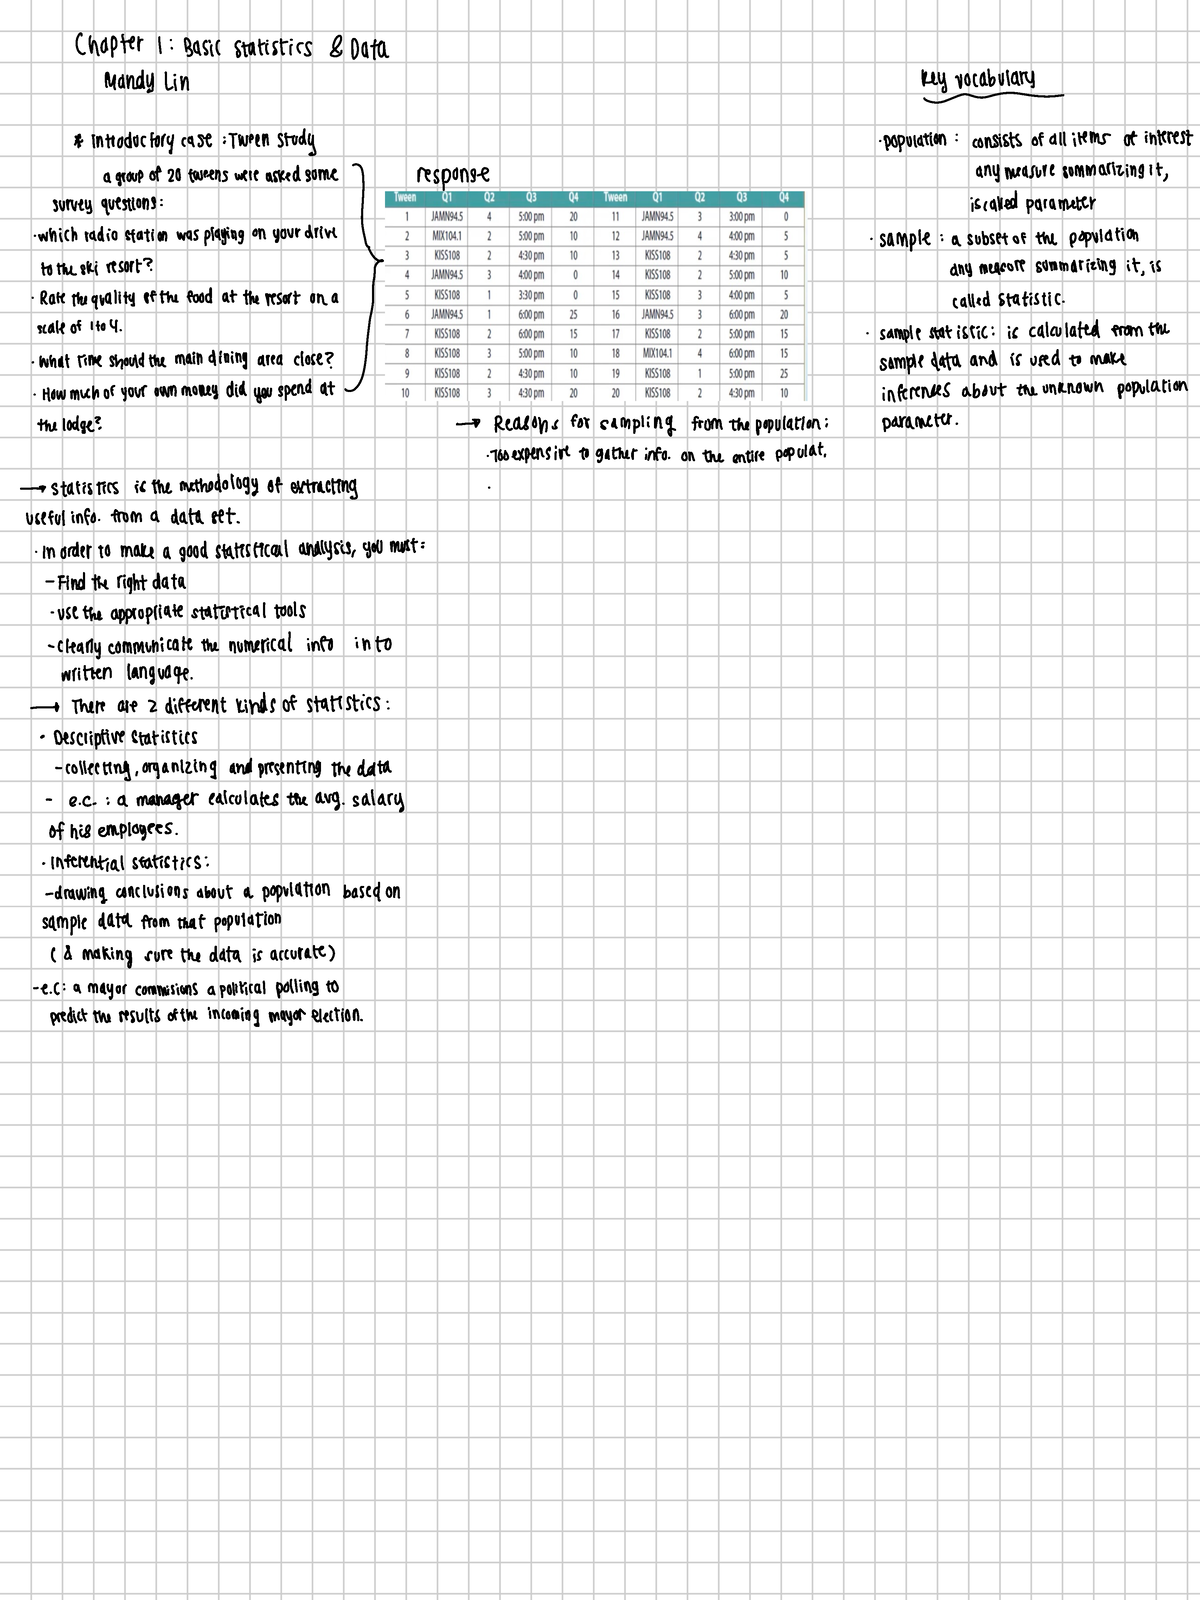 Chapter 1: Basic Statistics & Data
Mandy Lin
* Introductory case: Tween Study
a group of 20 tweens were asked some
survey questions:
·which radio station was playing on your drive
to the ski resort?
· Rate the quality of the food at the resort on a
scale of 1 to 4.
·What time should the main dining area close?
· How much of your own money did you spend at
the lodge?
response
Tween Q1 Q2 Q3 Q4 Tween Q1 Q2 Q3 Q4
1 JAMN94.5 4 5:00 pm 20 11 JAMN94.5 3 3:00 pm 0
2 MIX104.1 2 5:00 pm 10 12 JAMN94.5 4 4:00 pm 5
3 KISS108 2 4:30 pm 10 13 KISS108 2 4:30 pm 5
4 JAMN94.5 3 4:00 pm 0 14 KISS108 2 5:00 pm 10
5 KISS108 1 3:30 pm 0 15 KISS108 3 4:00 pm 5
6 JAMN94.5 1 6:00 pm 25 16 JAMN94.5 3 6:00 pm 20
7 KISS108 2 6:00 pm 15 17 KISS108 2 5:00 pm 15
8 KISS108 3 5:00 pm 10 18 MIX104.1 4 6:00 pm 15
9 KISS108 2 4:30 pm 10 19 KISS108 1 5:00 pm 25
10 KISS108 3 4:30 pm 20 20 KISS108 2 4:30 pm 10
→ Reasons for sampling from the population:
·Too expensive to gather info. on the entire populat.
·
→ Statistics is the methodology of extracting
useful info. from a data set.
· In order to make a good statistical analysis, you must:
- Find the right data
- use the appropriate statistical tools
- clearly communicate the numerical info into
written language.
→ There are 2 different kinds of statistics:
· Descriptive Statistics
- collecting, organizing and presenting the data
- e.c. : a manager calculates the avg. salary
of his employees.
· Inferential statistics:
- drawing conclusions about a population based on
sample data from that population
( & making sure the data is accurate)
- e.c: a mayor commisions a political polling to
predict the results of the incoming mayor election.
Key vocabulary
·population : consists of all items of interest
any measure summarizing it,
is called parameter
· sample : a subset of the population
any measure summarizing it, is
called statistic.
· sample statistic: is calculated from the
sample data and is used to make
inferences about the unknown population
parameter.